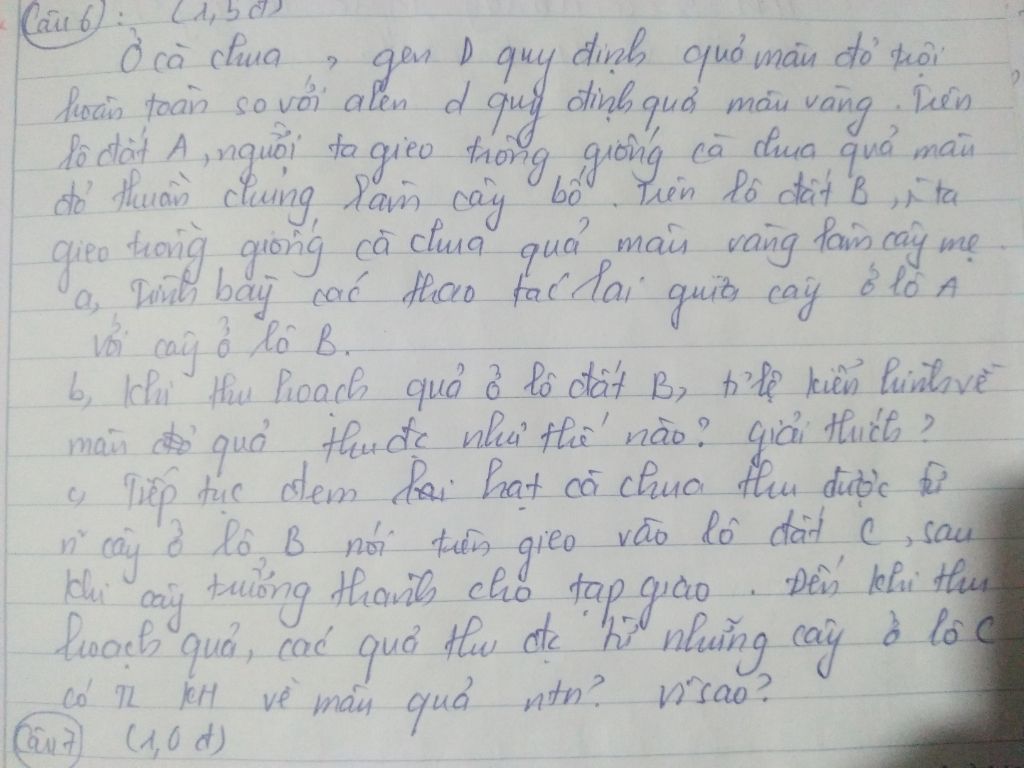 Câu 6): (1,5đ)
Ở cà chua, gen D quy định quả màu đỏ trội
hoàn toàn so với alen d quy định quả màu vàng. Trên
lô đất A, người ta gieo trồng giống cà chua quả màu
đỏ thuần chủng làm cây bố. Trên lô đất B, ta
gieo trồng giống cà chua quả màu vàng làm cây mẹ.
a, Trình bày các thao tác lai giữa cây ở lô A
với cây ở lô B.
b, Khi thu hoạch quả ở lô đất B, tỉ lệ kiểu hình về
màu quả thu đc như thế nào? giải thích?
c, Tiếp tục đem hạt cà chua thu được từ
n cây ở lô B nói trên gieo vào lô đất C, sau
khi cây trưởng thành cho tạp giao. Đến khi thu
hoạch quả, các quả thu đc từ những cây ở lô C
có TL KH về màu quả ntn? vì sao?
Câu 7) (1,0 đ)